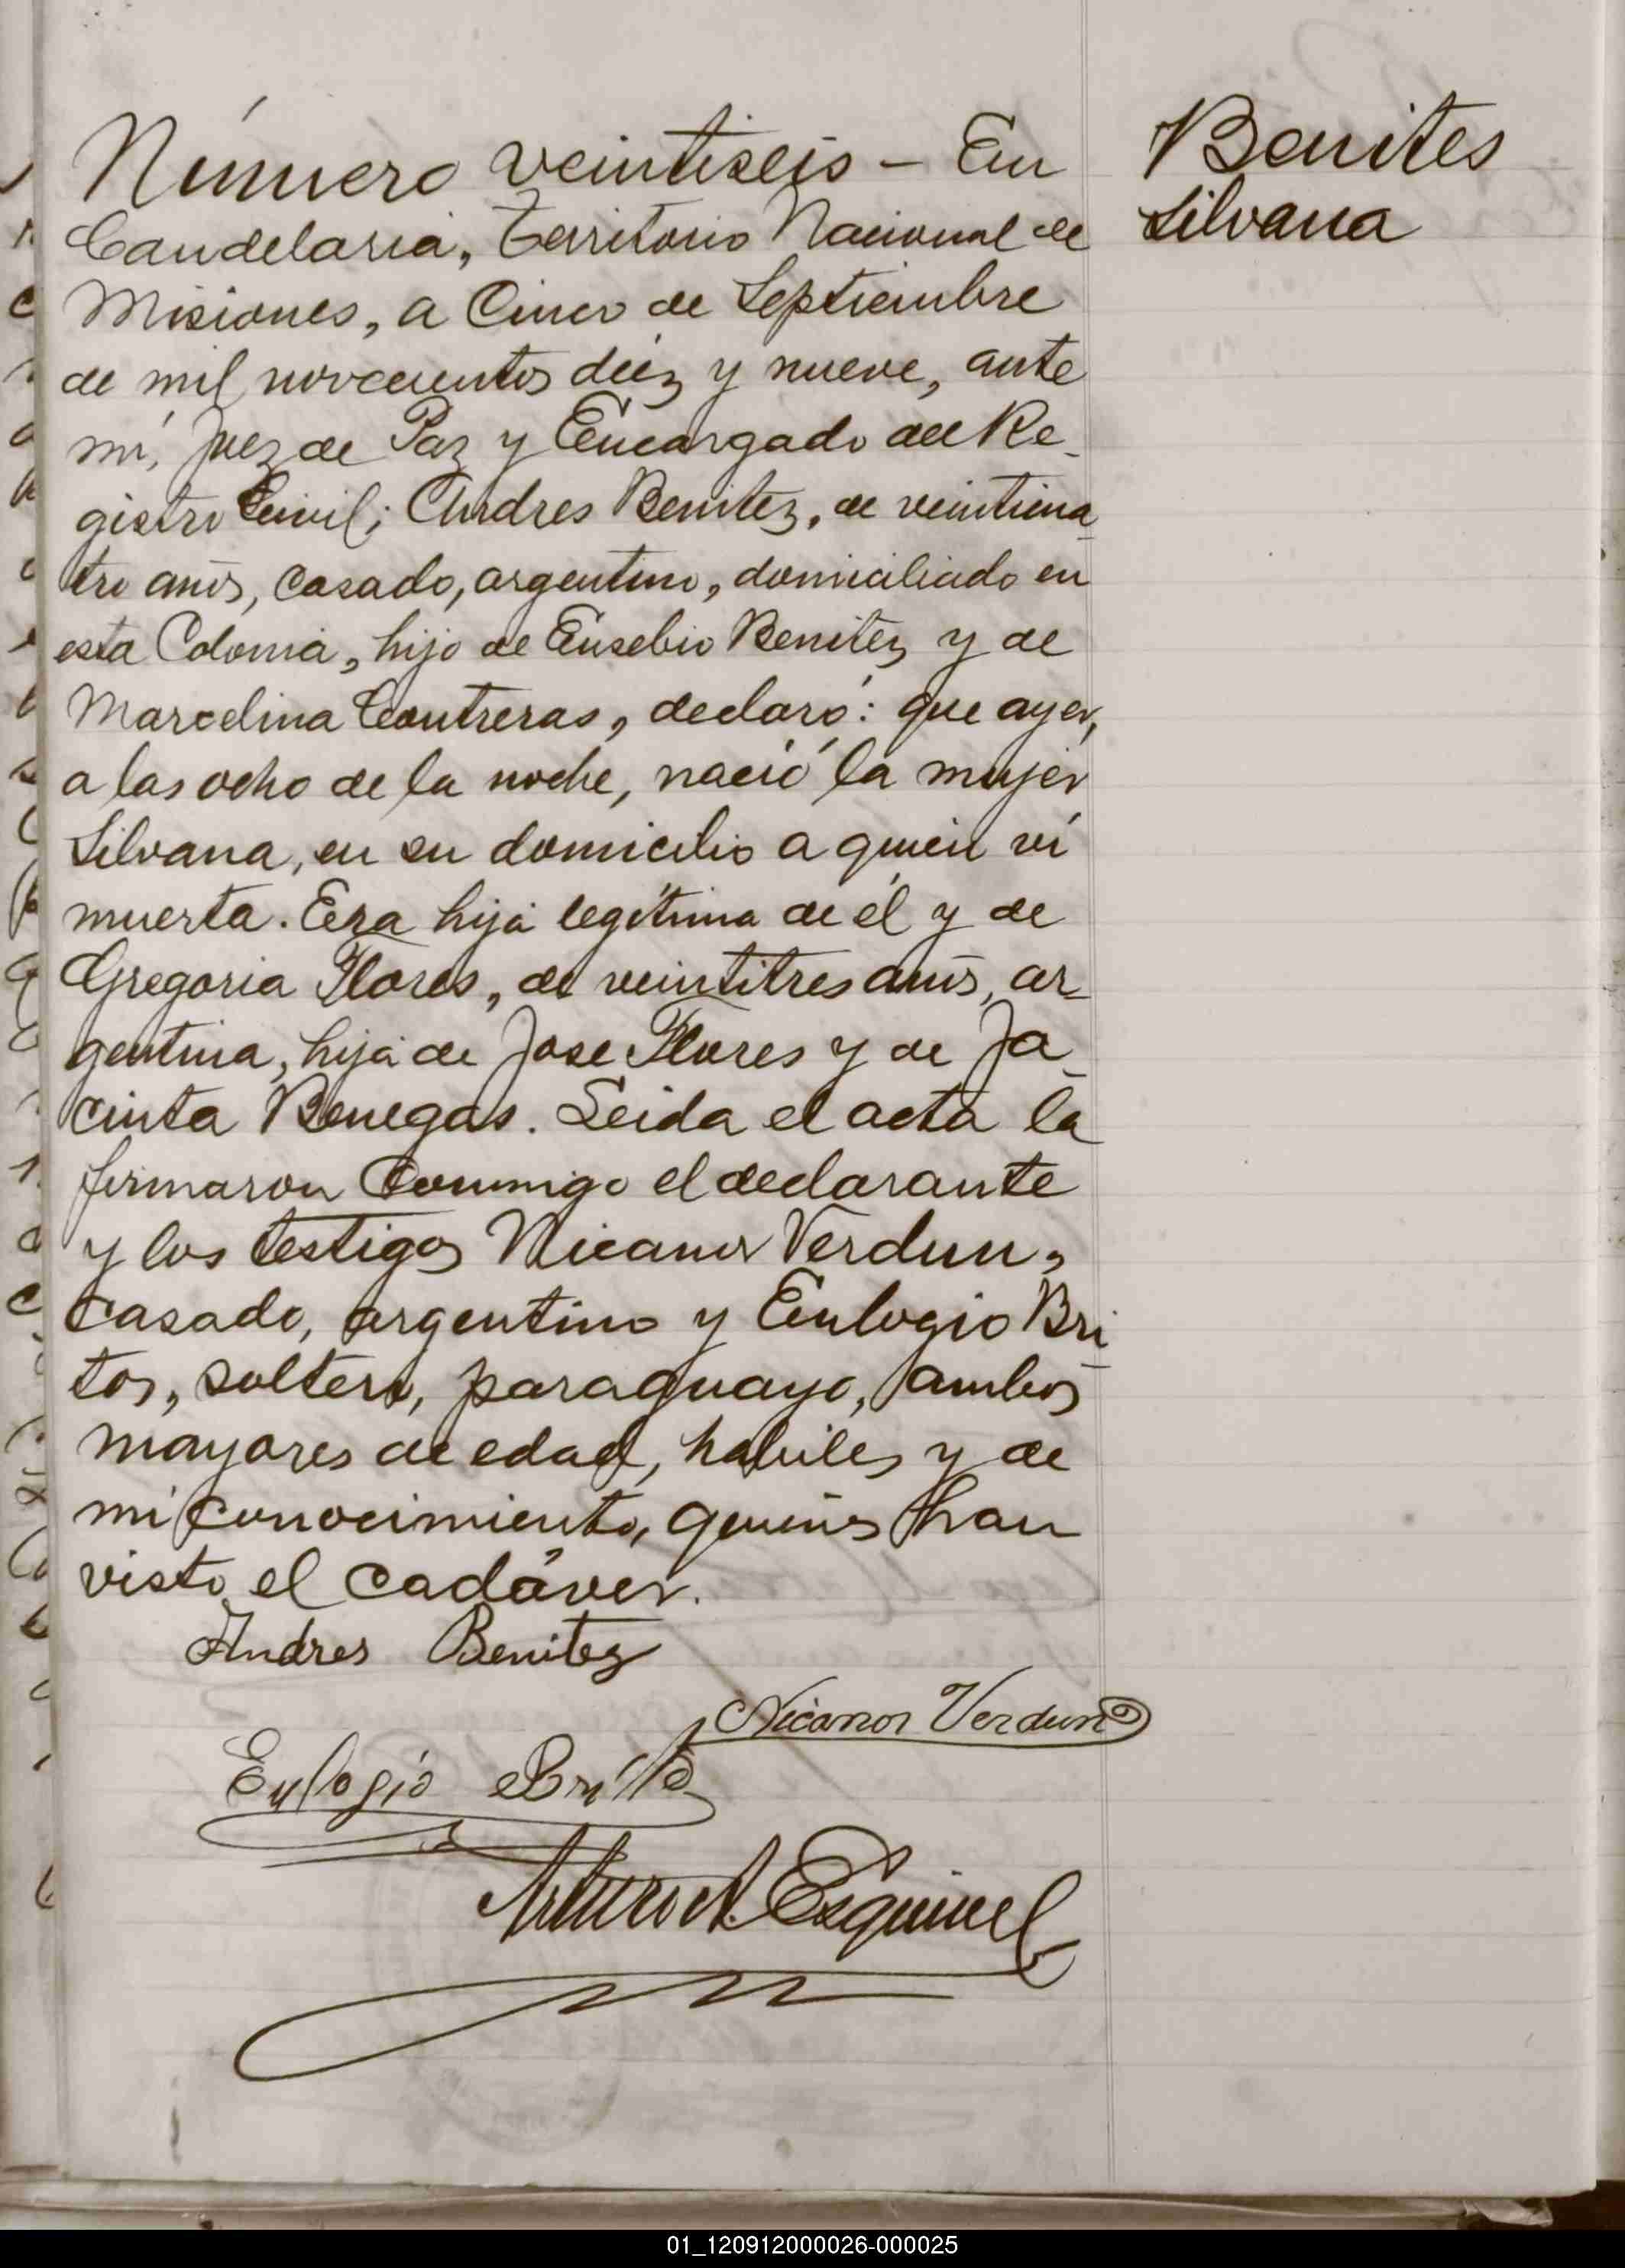 Número veintiseis – En
Candelaria, Territorio Nacional de
Misiones, a Cinco de Septiembre
de mil novecientos diéz y nueve, ante
mí, Juez de Paz y Encargado del Re-
gistro Civil; Andres Benitez, de veinticua-
tro años, casado, argentino, domiciliado en
esta Colonia, hijo de Eusebio Benitez y de
Marcelina Contreras, declaró: que ayer,
a las ocho de la noche, nació la mujer
Silvana, en su domicilio a quien ví
muerta. Era hija legítima de él y de
Gregoria Flores, de veintitres años, ar-
gentina, hija de Jose Flores y de Ja-
cinta Benegas. Leida el acta la
firmaron Conmigo el declarante
y los testigos Nicanor Verdun,
casado, argentino y Eulogio Bri-
tos, soltero, paraguayo, ambos
mayores de edad, habiles y de
mi conocimiento, quienes han
visto el cadáver.
Andres Benitez
Nicanor Verdun
Eulogio Brito
Arturo A. Esquivel
Benites
Silvana
01_120912000026-000025